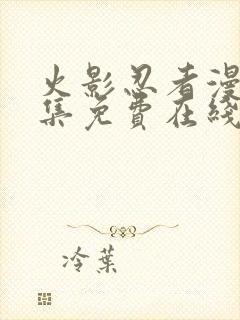 火影忍者漫
集免費在綫
冷葉